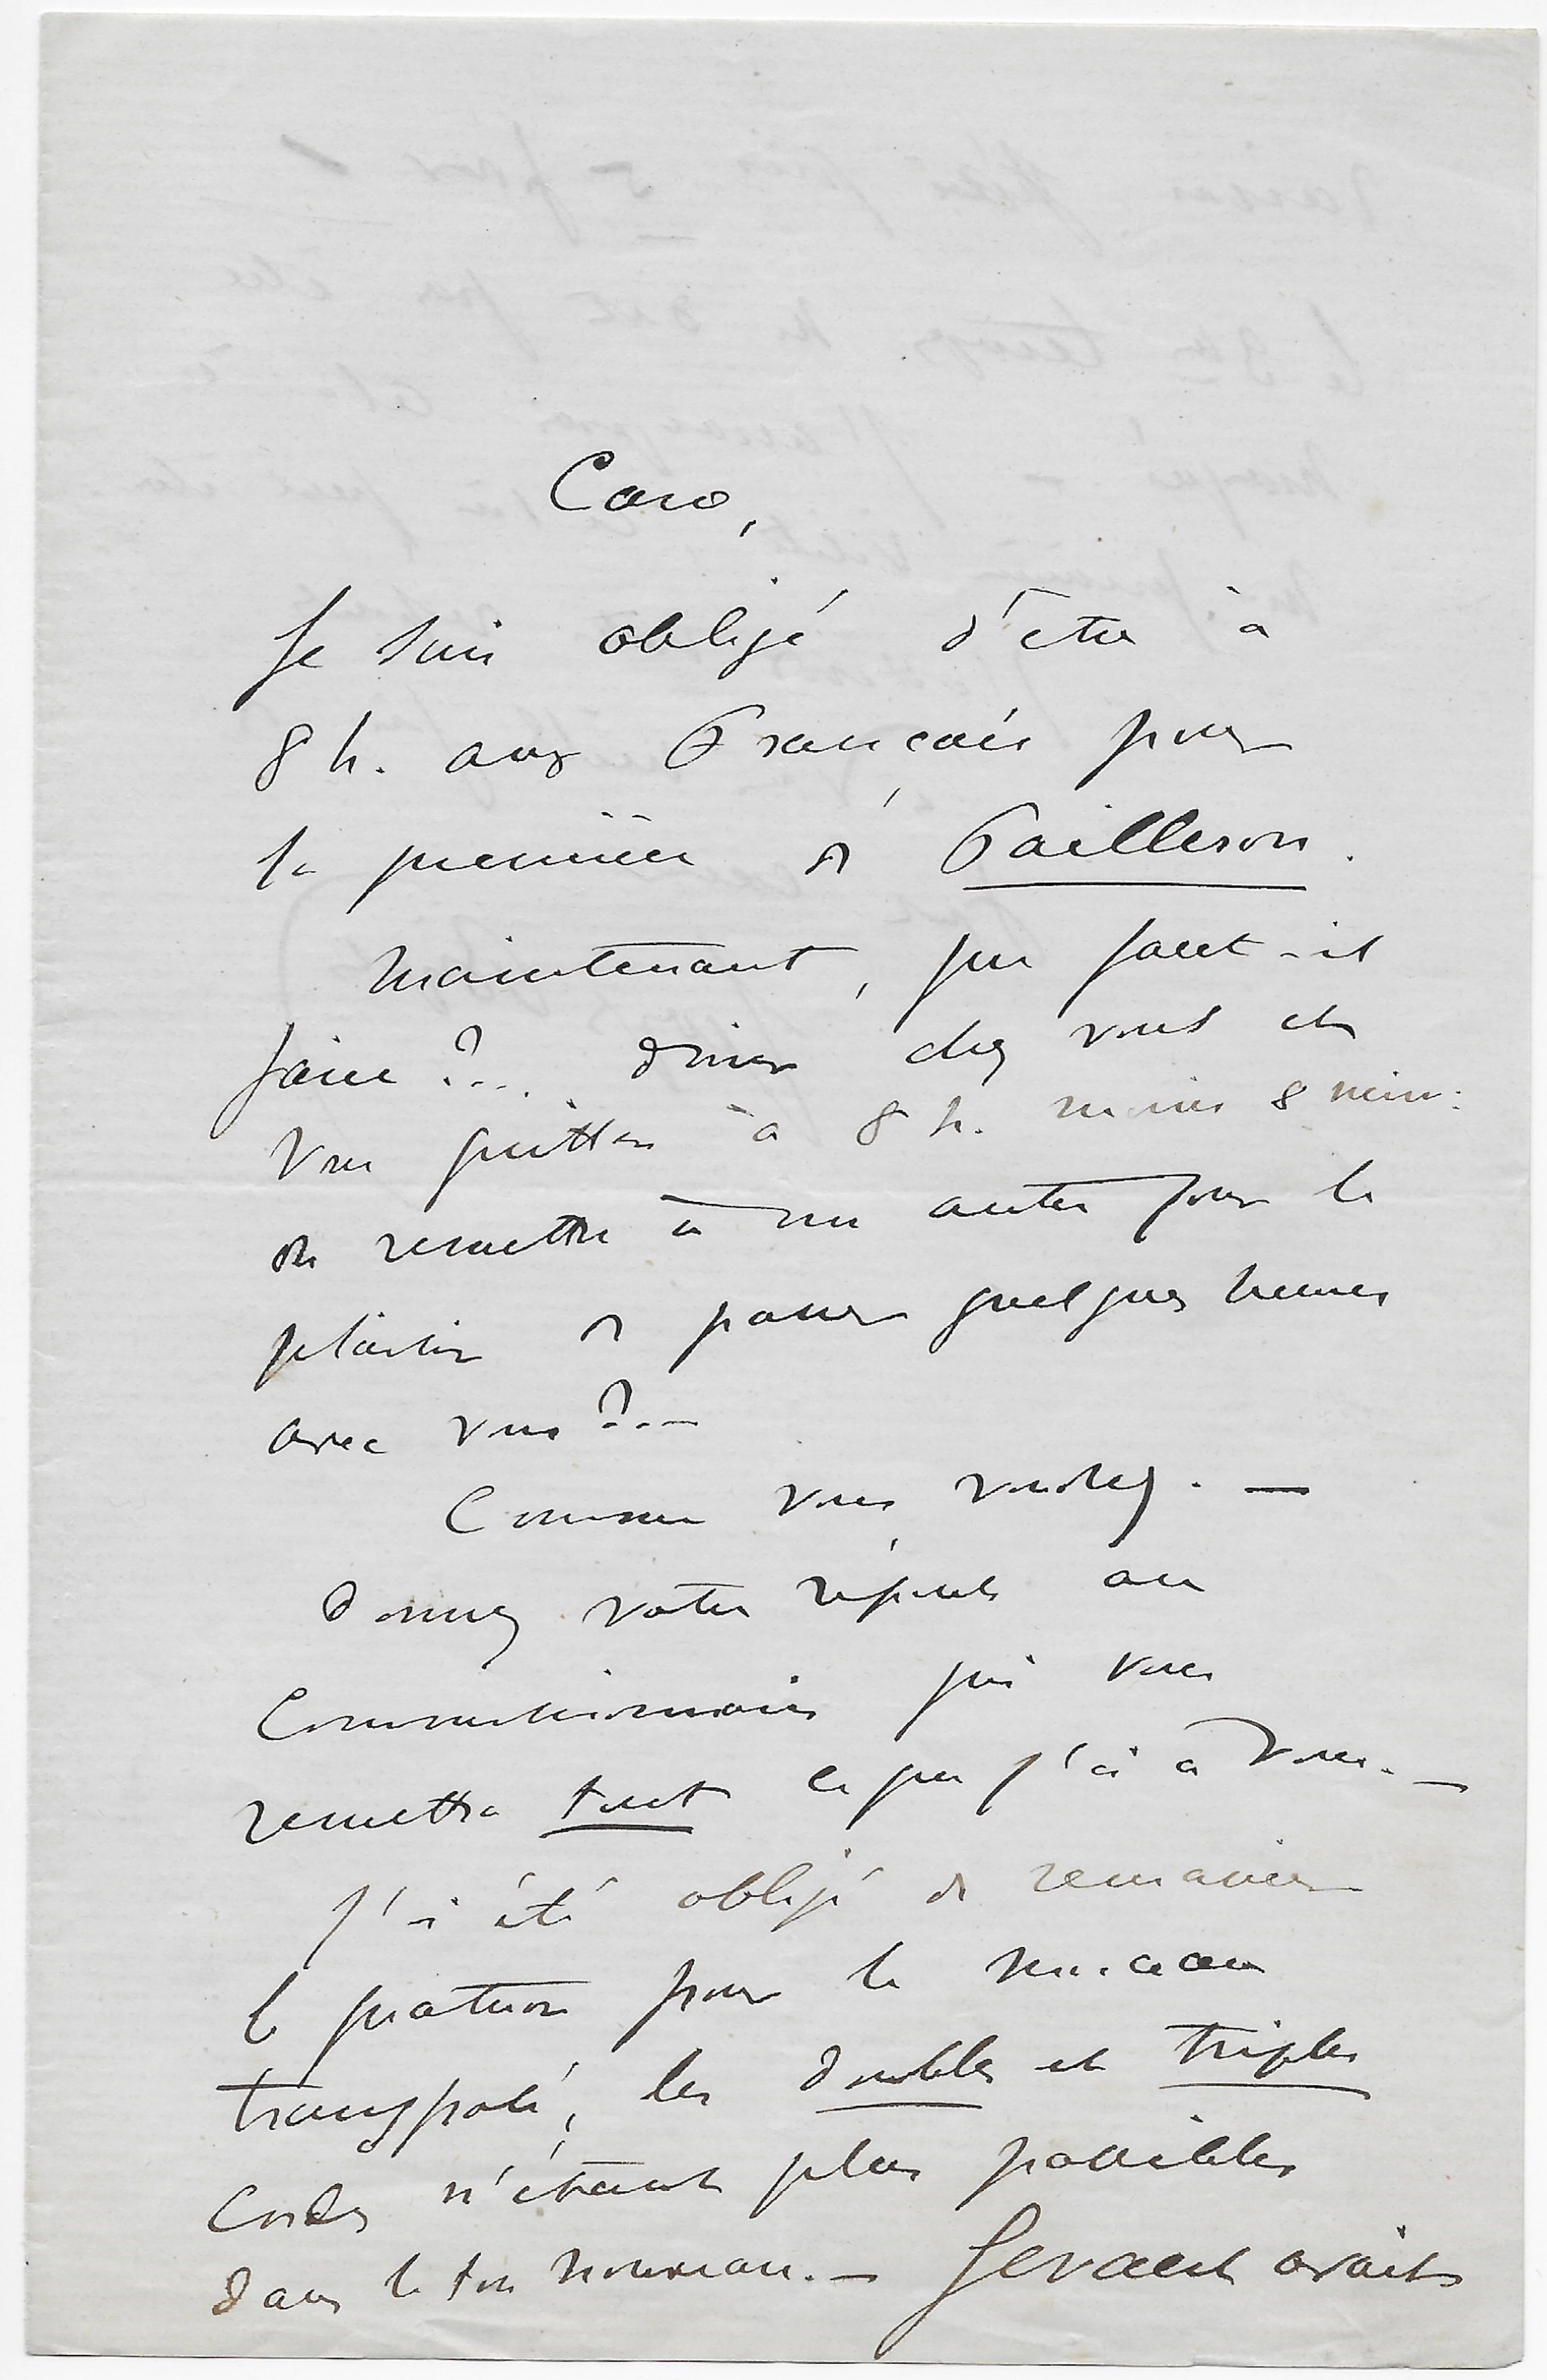 Caro,
Je suis obligé d'être à
8 h. aux Français pour
la première de Pailleron.
Maintenant, que faut-il
faire ?... diner chez vous et
vous quitter à 8 h. moins 8 min:
ou remettre à un autre jour le
plaisir de passer quelques heures
avec vous ?..—
Comme vous voudrez. —
Donnez votre réponse au
Commissionnaire qui vous
remettra tout ce que j'ai à vous. —
J'ai été obligé de remanier
le quatuor pour le morceau
transposé, les doubles et triples
Cordes n'étant plus possibles
dans le ton nouveau. — Gevaert avait